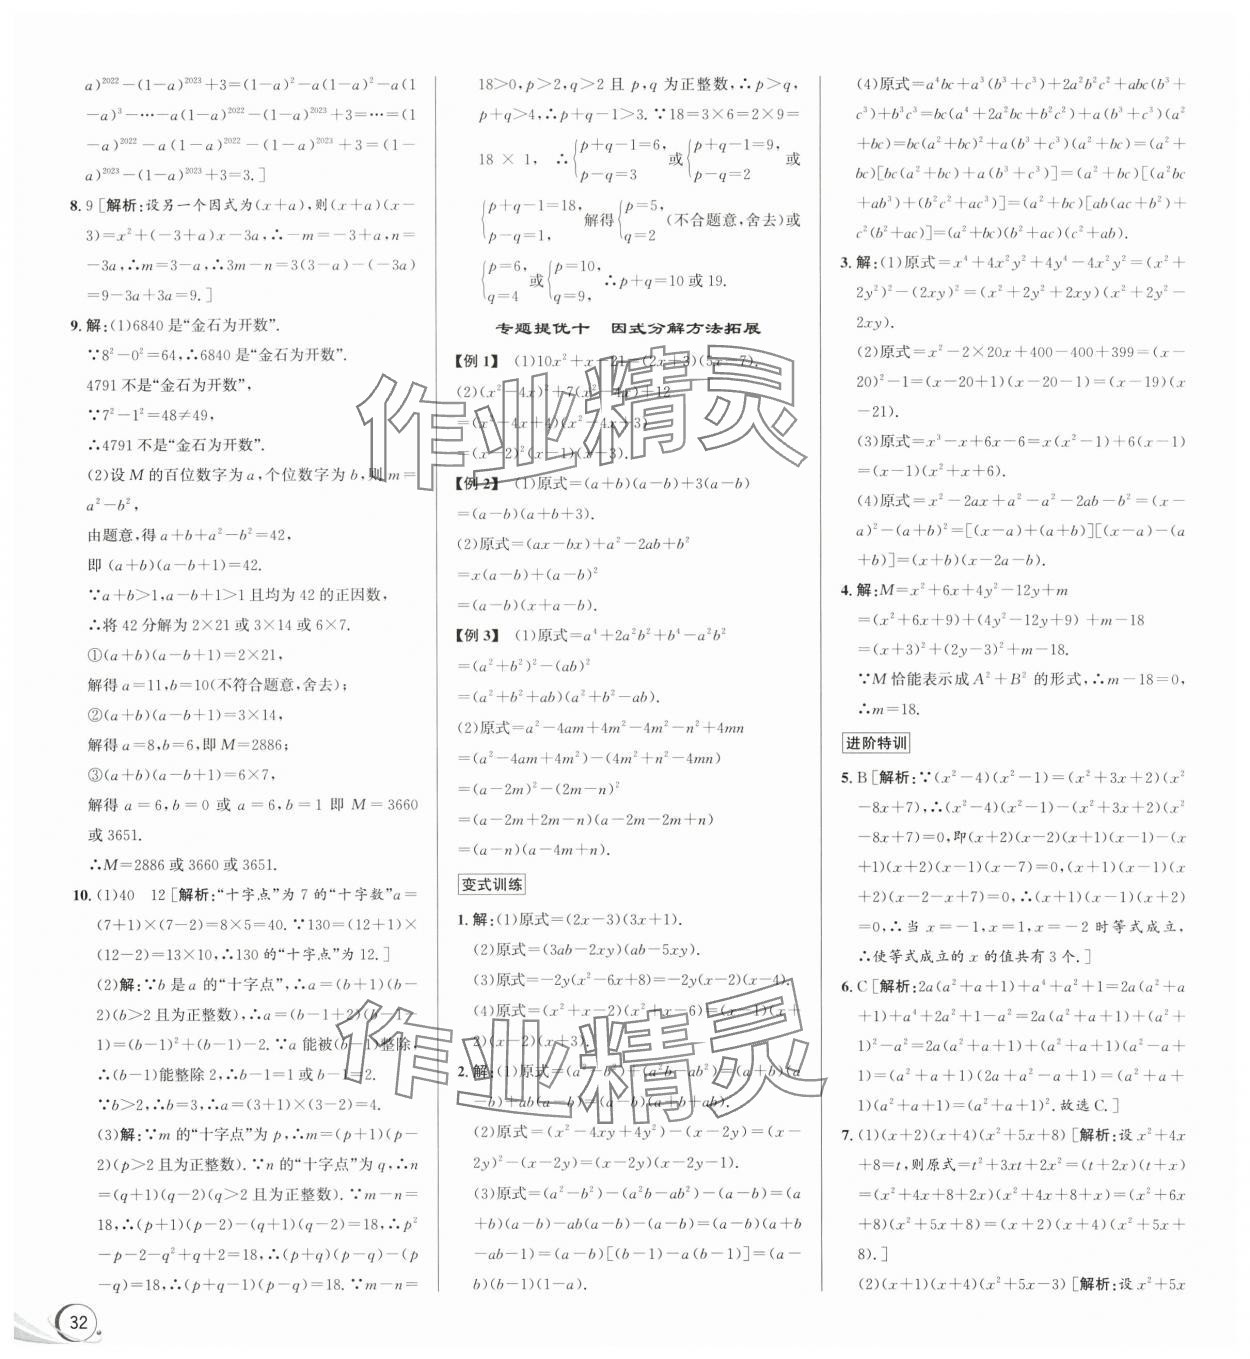 a)²⁰²²－(1－a)²⁰²³＋3＝(1－a)²－a(1－a)²－a(1
－a)³－…－a(1－a)²⁰²²－(1－a)²⁰²³＋3＝…＝(1
－a)²⁰²²－a(1－a)²⁰²²－(1－a)²⁰²³＋3＝(1－
a)²⁰²³－(1－a)²⁰²³＋3＝3.]
8. 9 [解析:设另一个因式为(x＋a),则(x＋a)(x－
3)＝x²＋(－3＋a)x－3a,∴－m＝－3＋a,n＝
－3a,∴m＝3－a,∴3m－n＝3(3－a)－(－3a)
＝9－3a＋3a＝9.]
9. 解:(1)6840是“金石为开数”.
∵8²－0²＝64,∴6840是“金石为开数”.
4791不是“金石为开数”,
∵7²－1²＝48≠49,
∴4791不是“金石为开数”.
(2)设M的百位数字为a,个位数字为b,则m＝
a²－b²,
由题意,得a＋b＋a²－b²＝42,
即(a＋b)(a－b＋1)＝42.
∵a＋b>1,a－b＋1>1且均为42的正因数,
∴将42分解为2×21或3×14或6×7.
①(a＋b)(a－b＋1)＝2×21,
解得a＝11,b＝10(不符合题意,舍去);
②(a＋b)(a－b＋1)＝3×14,
解得a＝8,b＝6,即M＝2886;
③(a＋b)(a－b＋1)＝6×7,
解得a＝6,b＝0或a＝6,b＝1即M＝3660
或3651.
∴M＝2886或3660或3651.
10. (1)40 12 [解析:“十字点”为7的“十字数”a＝
(7＋1)×(7－2)＝8×5＝40.∵130＝(12＋1)×
(12－2)＝13×10,∴130的“十字点”为12.]
(2)解:∵b是a的“十字点”,∴a＝(b＋1)(b－
2)(b>2且为正整数),∴a＝(b－1＋2)(b－1－
1)＝(b－1)²＋(b－1)－2.∵a能被(b－1)整除,
∴(b－1)能整除2,∴b－1＝1或b－1＝2.
∵b>2,∴b＝3,∴a＝(3＋1)×(3－2)＝4.
(3)解:∵m的“十字点”为p,∴m＝(p＋1)(p－
2)(p>2且为正整数).∵n的“十字点”为q,∴n
＝(q＋1)(q－2)(q>2且为正整数).∵m－n＝
18,∴(p＋1)(p－2)－(q＋1)(q－2)＝18,∴p²
－p－2－q²＋q＋2＝18,∴(p＋q)(p－q)－(p－
q)＝18,∴(p＋q－1)(p－q)＝18.∵m－n＝
18>0,p>2,q>2且p,q为正整数,∴p>q,
p＋q>4,∴p＋q－1>3.∵18＝3×6＝2×9＝
18×1, ∴{p＋q－1＝6, p－q＝3 或{p＋q－1＝9, p－q＝2 或
{p＋q－1＝18, p－q＝1, 解得{p＝5, q＝2 (不合题意,舍去)或
{p＝6, q＝4 或{p＝10, q＝9, ∴p＋q＝10或19.
专题提优十 因式分解方法拓展
【例1】 (1)10x²＋x－21＝(2x＋3)(5x－7).
(2)(x²－4x)²＋7(x²－4x)＋12
＝(x²－4x＋4)(x²－4x＋3)
＝(x－2)²(x－1)(x－3).
【例2】 (1)原式＝(a＋b)(a－b)＋3(a－b)
＝(a－b)(a＋b＋3).
(2)原式＝(ax－bx)＋a²－2ab＋b²
＝x(a－b)＋(a－b)²
＝(a－b)(x＋a－b).
【例3】 (1)原式＝a⁴＋2a²b²＋b⁴－a²b²
＝(a²＋b²)²－(ab)²
＝(a²＋b²＋ab)(a²＋b²－ab).
(2)原式＝a²－4am＋4m²－4m²－n²＋4mn
＝(a²－4am＋4m²)－(4m²＋n²－4mn)
＝(a－2m)²－(2m－n)²
＝(a－2m＋2m－n)(a－2m－2m＋n)
＝(a－n)(a－4m＋n).
变式训练
1. 解:(1)原式＝(2x－3)(3x＋1).
(2)原式＝(3ab－2xy)(ab－5xy).
(3)原式＝－2y(x²－6x＋8)＝－2y(x－2)(x－4).
(4)原式＝(x²＋x－2)(x²＋x－6)＝(x－1)(x＋
2)(x－2)(x＋3).
2. 解:(1)原式＝(a²－b²)＋(a²b－ab²)＝(a＋b)(a
－b)＋ab(a－b)＝(a－b)(a＋b＋ab).
(2)原式＝(x²－4xy＋4y²)－(x－2y)＝(x－
2y)²－(x－2y)＝(x－2y)(x－2y－1).
(3)原式＝(a²－b²)－(a²b－ab²)－(a－b)＝(a
＋b)(a－b)－ab(a－b)－(a－b)＝(a－b)(a＋b
－ab－1)＝(a－b)[(b－1)－a(b－1)]＝(a－
b)(b－1)(1－a).
(4)原式＝a⁴bc＋a³(b³＋c³)＋2a²b²c²＋abc(b³＋
c³)＋b³c³＝bc(a⁴＋2a²bc＋b²c²)＋a(b³＋c³)(a²
＋bc)＝bc(a²＋bc)²＋a(b³＋c³)(a²＋bc)＝(a²＋
bc)[bc(a²＋bc)＋a(b³＋c³)]＝(a²＋bc)[(a²bc
＋ab³)＋(b²c²＋ac³)]＝(a²＋bc)[ab(ac＋b²)＋
c²(b²＋ac)]＝(a²＋bc)(b²＋ac)(c²＋ab).
3. 解:(1)原式＝x⁴＋4x²y²＋4y⁴－4x²y²＝(x²＋
2y²)²－(2xy)²＝(x²＋2y²＋2xy)(x²＋2y²－
2xy).
(2)原式＝x²－2×20x＋400－400＋399＝(x－
20)²－1＝(x－20＋1)(x－20－1)＝(x－19)(x
－21).
(3)原式＝x³－x＋6x－6＝x(x²－1)＋6(x－1)
＝(x－1)(x²＋x＋6).
(4)原式＝x²－2ax＋a²－a²－2ab－b²＝(x－
a)²－(a＋b)²＝[(x－a)＋(a＋b)][(x－a)－(a
＋b)]＝(x＋b)(x－2a－b).
4. 解:M＝x²＋6x＋4y²－12y＋m
＝(x²＋6x＋9)＋(4y²－12y＋9)＋m－18
＝(x＋3)²＋(2y－3)²＋m－18.
∵M恰能表示成A²＋B²的形式,∴m－18＝0,
∴m＝18.
进阶特训
5. B [解析:∵(x²－4)(x²－1)＝(x²＋3x＋2)(x²
－8x＋7),∴(x²－4)(x²－1)－(x²＋3x＋2)(x²
－8x＋7)＝0,即(x＋2)(x－2)(x＋1)(x－1)－(x
＋1)(x＋2)(x－1)(x－7)＝0,∴(x＋1)(x－1)(x
＋2)(x－2－x＋7)＝0,∴(x＋1)(x－1)(x＋2)
＝0,∴当x＝－1,x＝1,x＝－2时等式成立,
∴使等式成立的x的值共有3个.]
6. C [解析:2a(a²＋a＋1)＋a⁴＋a²＋1＝2a(a²＋a
＋1)＋a⁴＋2a²＋1－a²＝2a(a²＋a＋1)＋(a²＋
1)²－a²＝2a(a²＋a＋1)＋(a²＋a＋1)(a²－a＋
1)＝(a²＋a＋1)(2a＋a²－a＋1)＝(a²＋a＋
1)(a²＋a＋1)＝(a²＋a＋1)².故选C.]
7. (1)(x＋2)(x＋4)(x²＋5x＋8) [解析:设x²＋4x
＋8＝t,则原式＝t²＋3xt＋2x²＝(t＋2x)(t＋x)
＝(x²＋4x＋8＋2x)(x²＋4x＋8＋x)＝(x²＋6x
＋8)(x²＋5x＋8)＝(x＋2)(x＋4)(x²＋5x＋
8).]
(2)(x＋1)(x＋4)(x²＋5x－3) [解析:设x²＋5x
32
作业精灵
作业精灵